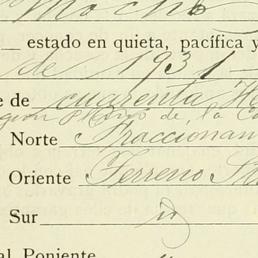 Mocho
estado en quieta, pacífica y
de 1931
e de cuarenta H
de la C
Norte Fraccionam
Oriente Terreno
Sur id
al Poniente